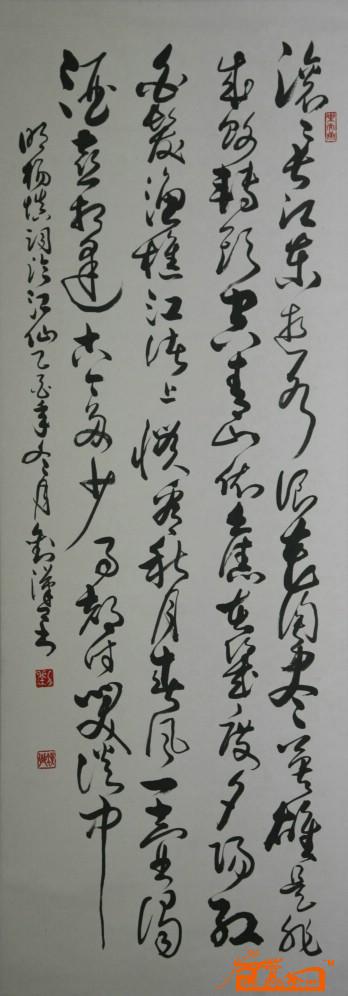 滚滚长江东逝水浪花淘尽英雄是非
成败转头空青山依旧在几度夕阳红
白发渔樵江渚上惯看秋月春风一壶浊
酒喜相逢古今多少事都付笑谈中
明杨慎词临江仙乙酉年冬月刘汉